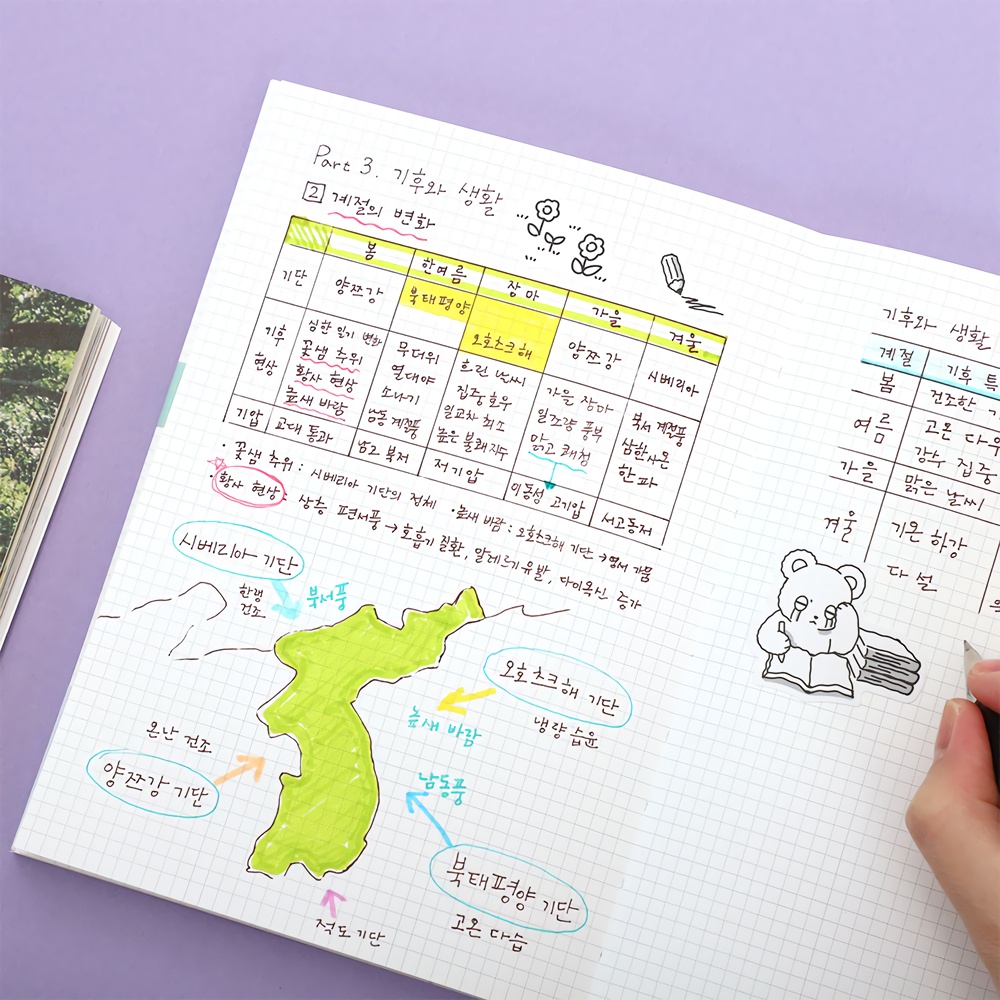 Part 3. 기후와 생활
2 계절의 변화
봄 한여름 장마 가을 겨울
기단 양쯔강 북태평양 오호츠크해 양쯔강 시베리아
기후 현상
심한 일기 변화
꽃샘 추위
황사 현상
높새 바람
무더위
열대야
소나기
남동 계절풍
흐린 날씨
집중 호우
일교차 최소
높은 불쾌지수
가을 장마
일조량 풍부
맑고 쾌청
북서 계절풍
삼한사온
한파
기압 교대 통과 남고 북저 저기압 이동성 고기압 서고동저
· 꽃샘 추위 : 시베리아 기단의 정체 · 높새 바람 : 오호츠크해 기단 → 영서 가뭄
· 황사 현상 : 상층 편서풍 → 호흡기 질환, 알레르기 유발, 다이옥신 증가
시베리아 기단
한랭
건조
북서풍
오호츠크해 기단
냉량 습윤
높새 바람
온난 건조
양쯔강 기단
남동풍
북태평양 기단
고온 다습
적도기단
기후와 생활
계절 기후 특
봄 건조한
여름 고온 다우
강수 집중
가을 맑은 날씨
겨울 기온 하강
다설